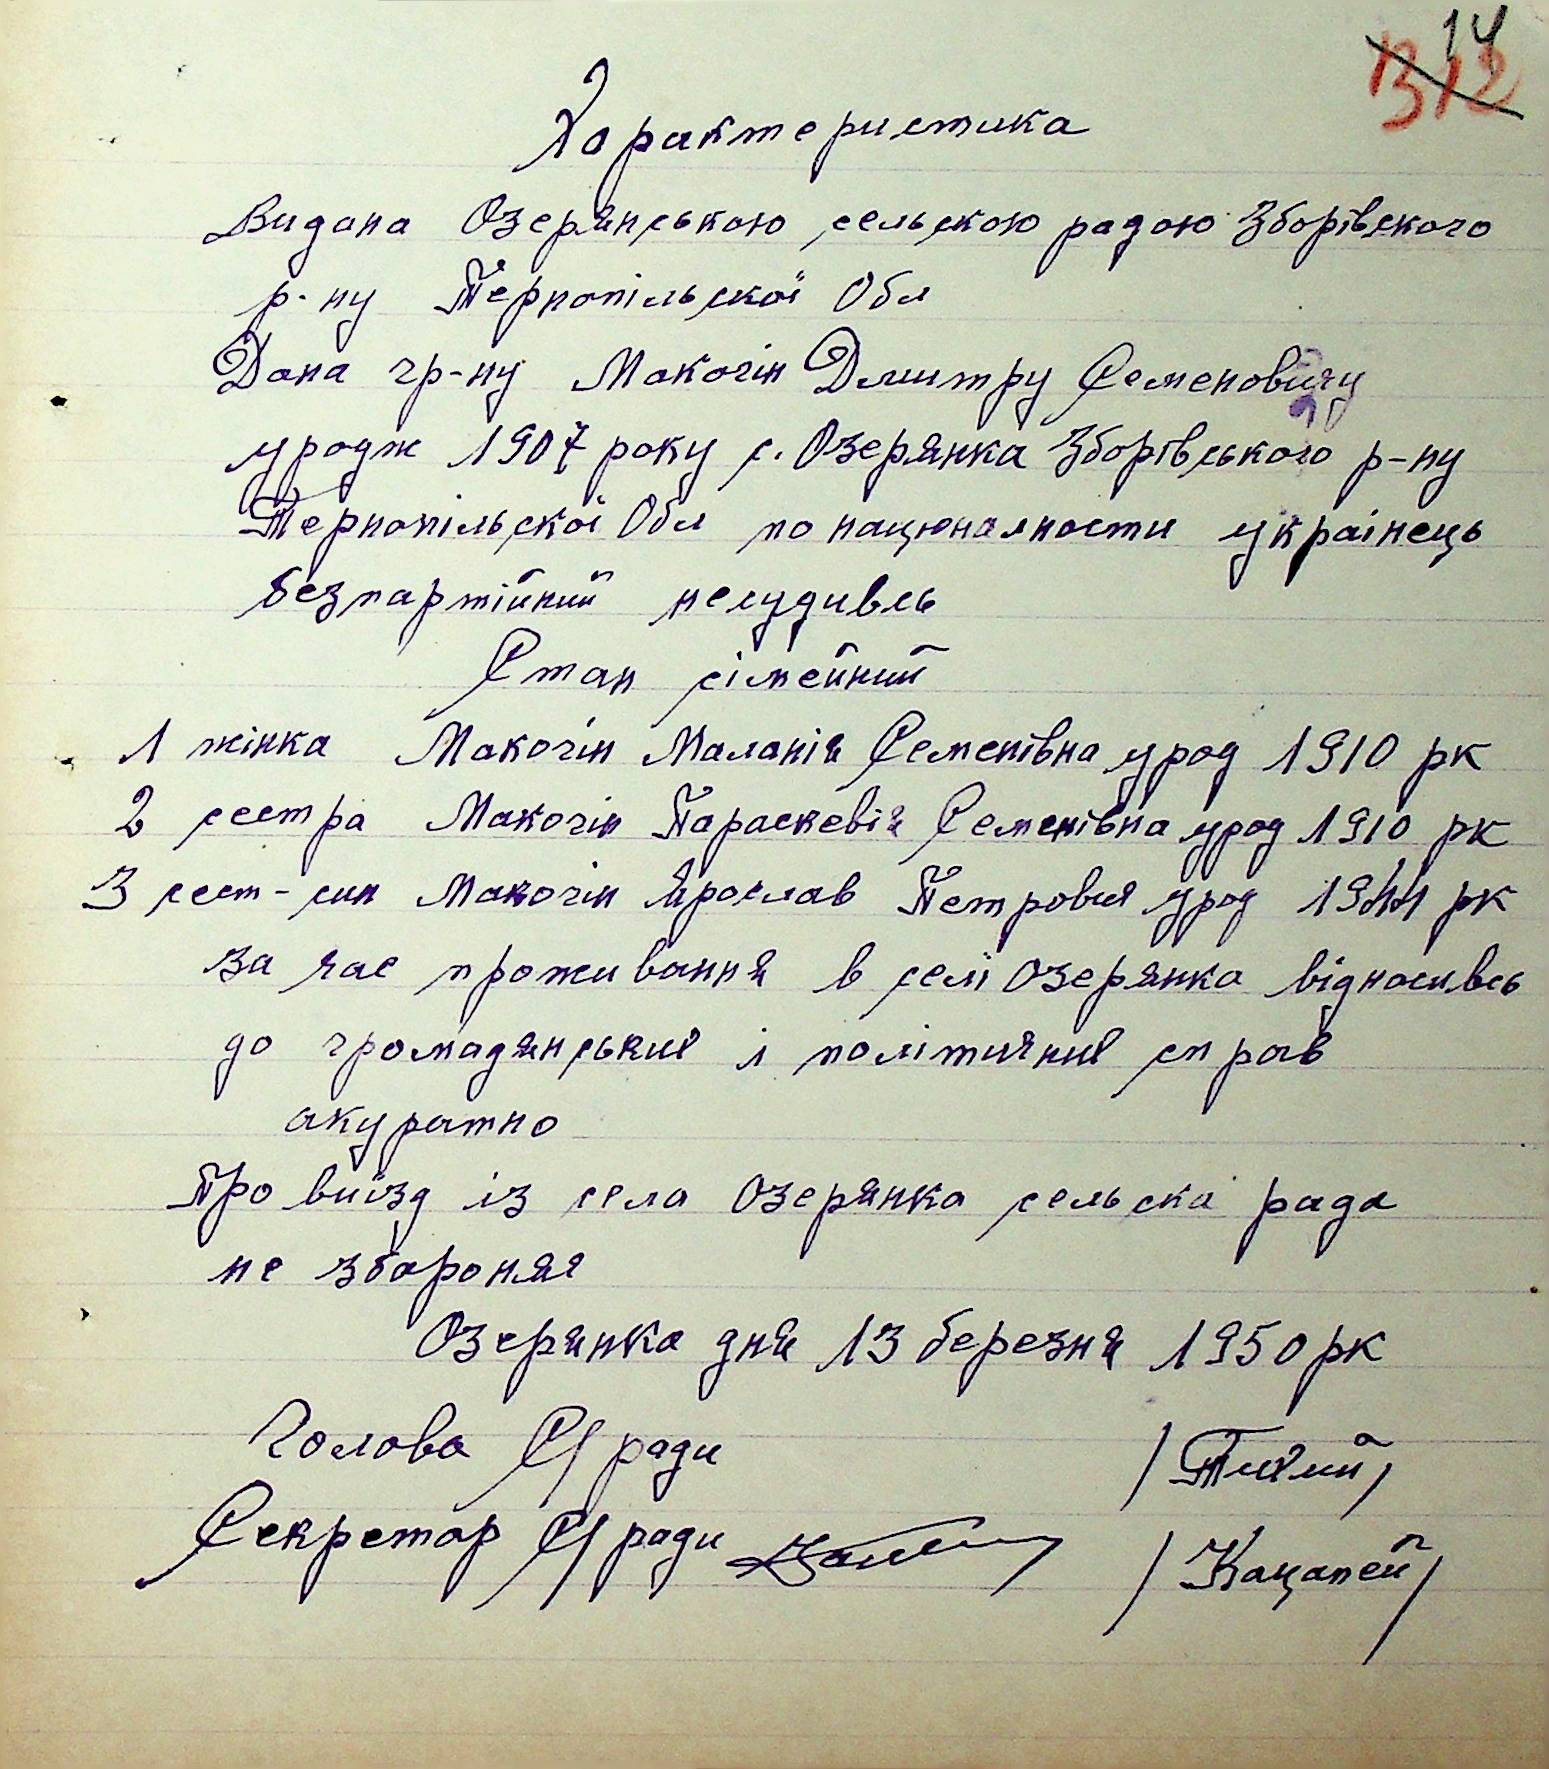 14
13 12
Характеристика
Видана Озерянською сельскою радою Зборівского
р-ну Тернопільскої Обл
Дана гр-ну Макогін Дмитру Семеновичу
уродж 1907 року с. Озерянка Зборівського р-ну
Тернопільскої Обл по націоналности українець
безпартійний несудивсь
Стан сімейний
1 жінка Макогін Маланія Семенівна урод 1910 рк
2 сестра Макогін Параскевія Семенівна урод 1910 рк
3 сест-син Макогін Ярослав Петрович урод 1944 рк
за час проживання в селі Озерянка відносивсь
до громадянський і політичний справ
акуратно
Про виїзд із села Озерянка сельска рада
не збороняє
Озерянка дня 13 березня 1950 рк
Голова С/ ради /Тихий/
Секретар С/ ради /Кацапей/